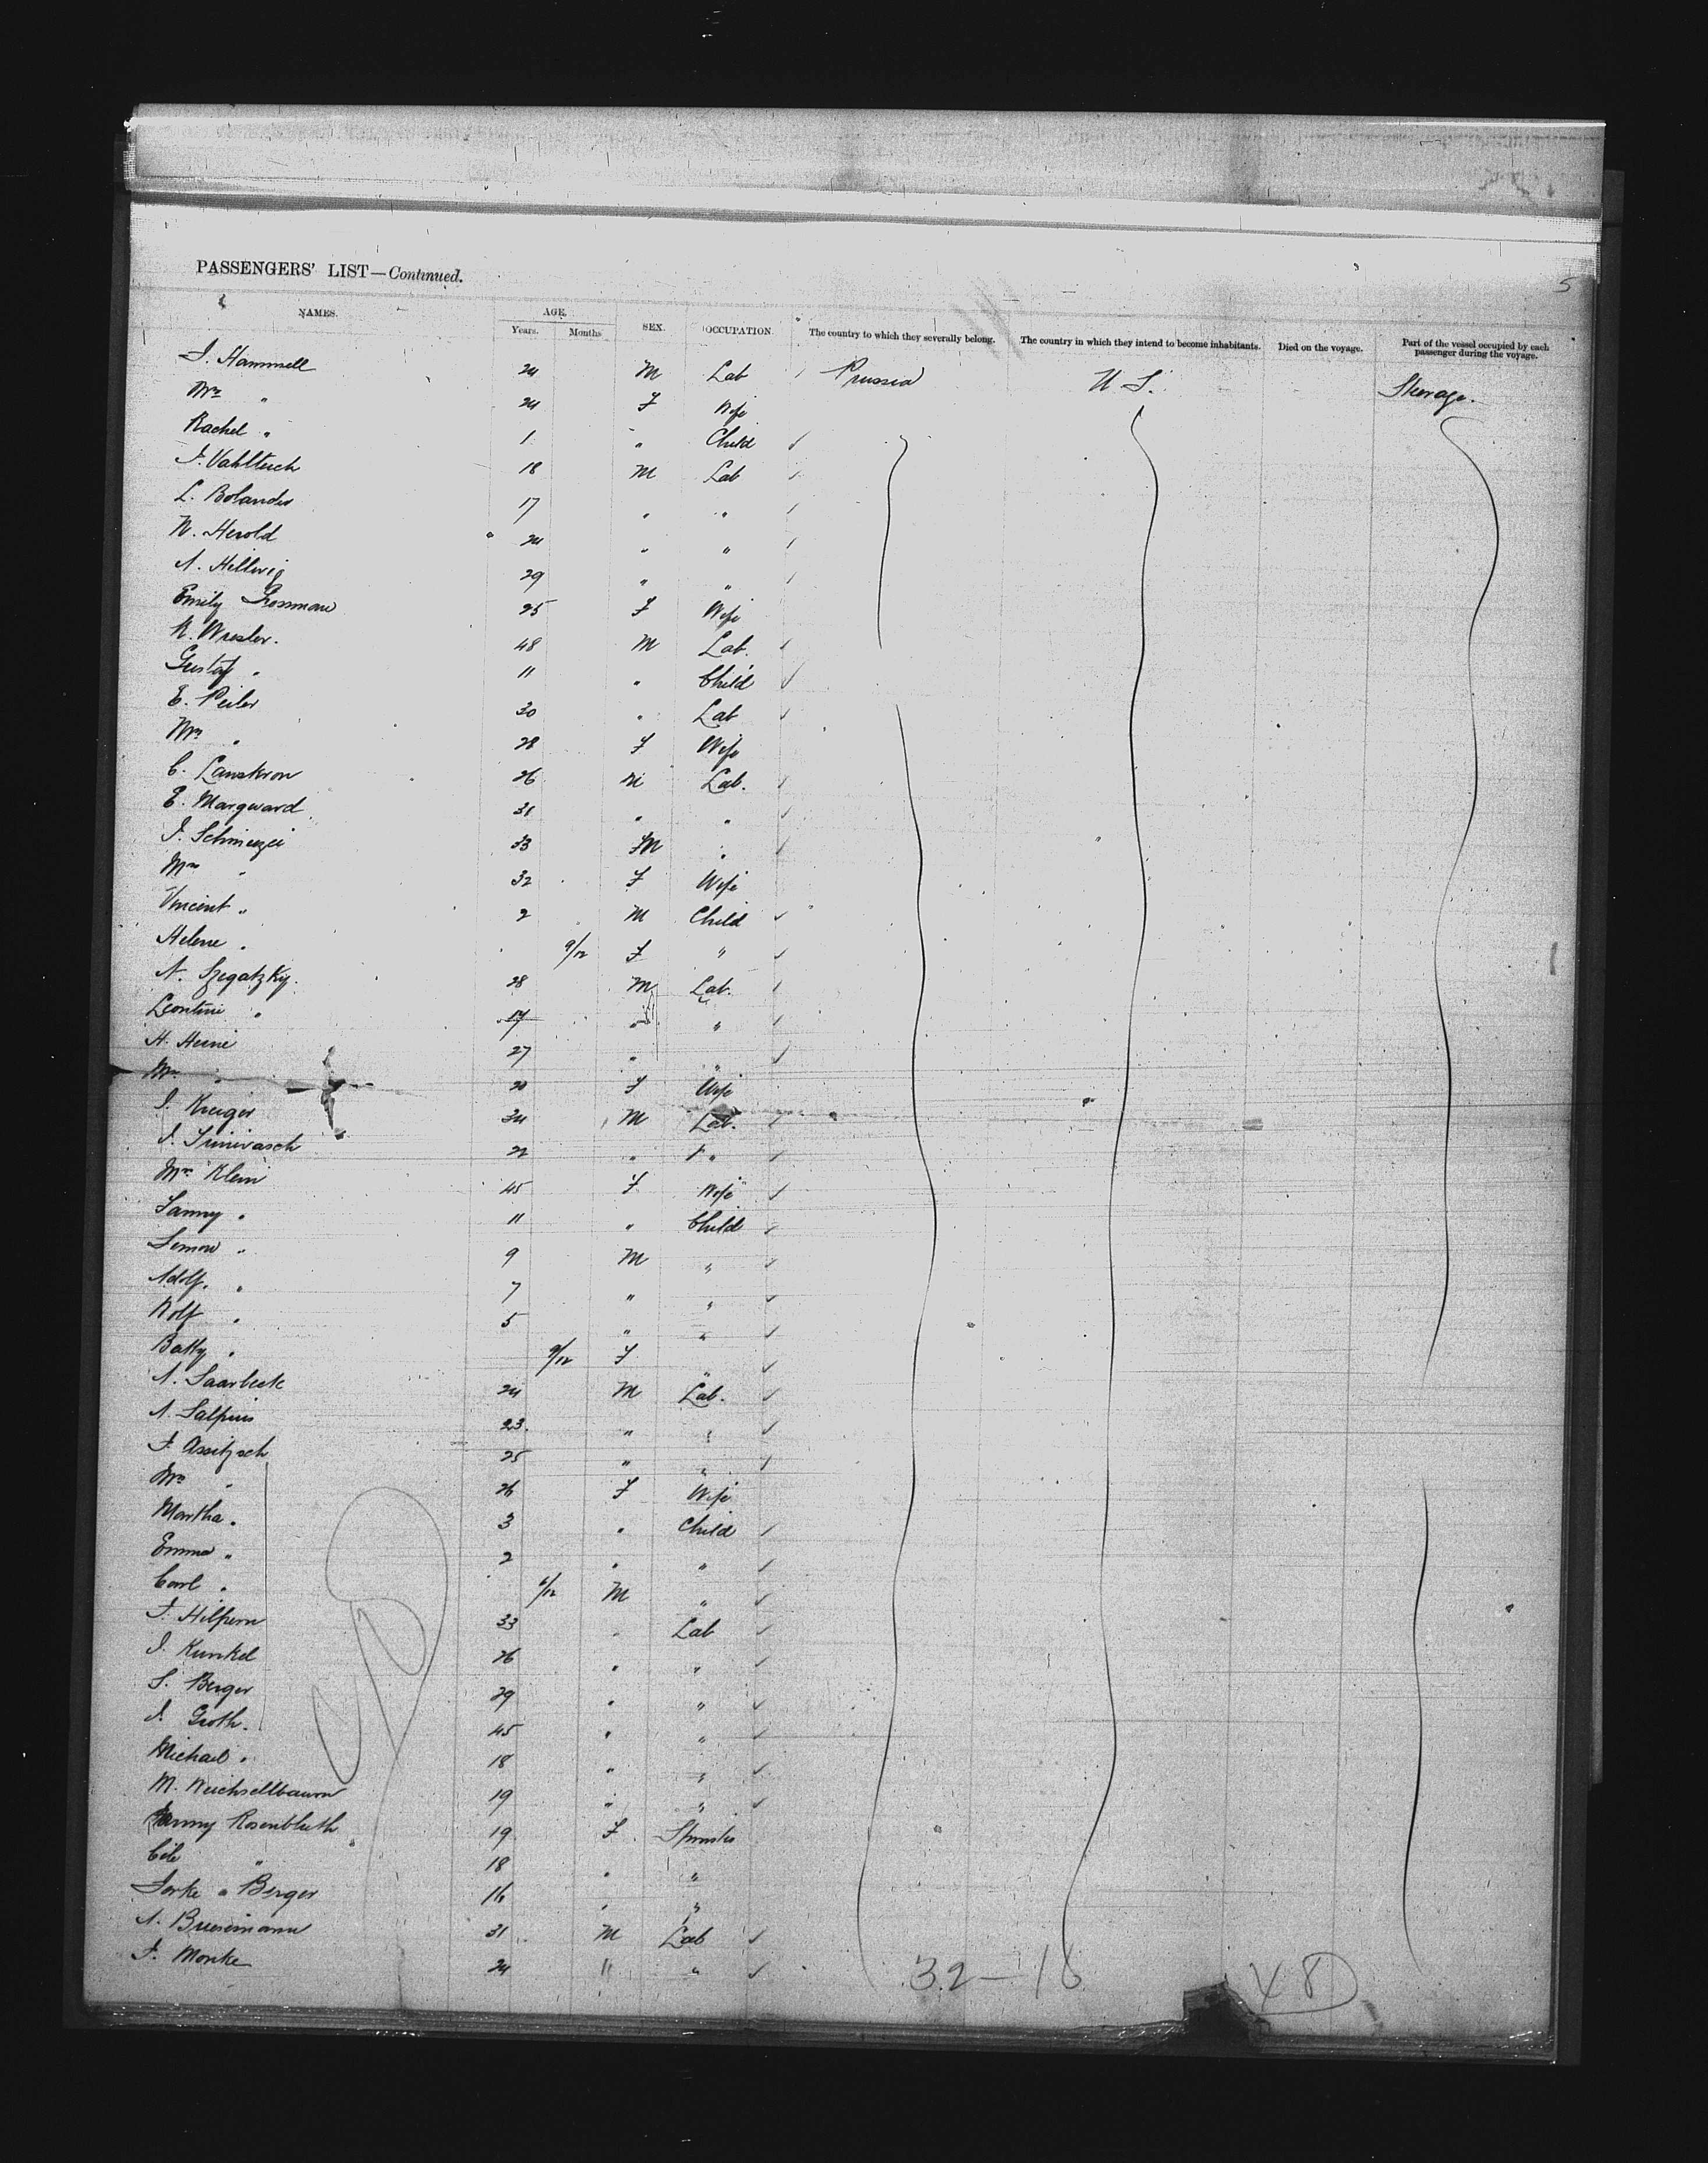 5
PASSENGERS' LIST—Continued.
NAMES. AGE. Years. Months SEX. OCCUPATION. The country to which they severally belong. The country in which they intend to become inhabitants. Died on the voyage. Part of the vessel occupied by each passenger during the voyage.
J. Hammell 24 M Lab Prussia U S. Steerage.
Mrs " 24 F Wife
Rachel " 1 " Child
F. Vahlteich 18 M Lab
L. Bolander 17 " "
W. Herold 24 " "
A. Hellwig 29 " "
Emily Grossman 25 F Wife
R. Wresler. 48 M Lab.
Gustaf " 11 " Child
E. Peiler 30 " Lab
Mrs " 28 F Wife
C. Lanskron 26 M Lab.
E. Marqward 31 " "
J. Schmiezei 33 M "
Mrs " 32 F Wife
Vincent " 2 M Child
Helene " 9/12 F "
N. Szegatzky. 28 M Lab.
Leontine " 17 " "
H. Heine 27 " "
Mrs " 20 F Wife
J. Kreiger 34 M Lab.
J. 22 " "
Mrs Klein 45 F Wife
Fanny " 11 " Child
Simon " 9 M "
Adolf. " 7 " "
Rolf " 5 " "
Batty " 9/12 F "
A. Saarbeck 24 M Lab.
A. Salpius 23 " "
F. Assitzsch 25 " "
Mrs " 26 F Wife
Martha " 3 " Child
Emma " 2 " "
Carl " 6/12 M "
F. Hilpern 33 " Lab
J. Kunkel 26 " "
S. Berger 29 " "
J. Groth. 45 " "
Michael " 18 " "
M. Weichsellbaum 19 " "
Fanny Rosenbluth 19 F Spinster
Cile " 18 " "
Sorke " Berger 16 " "
A. Buesemann 31 M Lab
F. Monke 24 " "
32—16 48